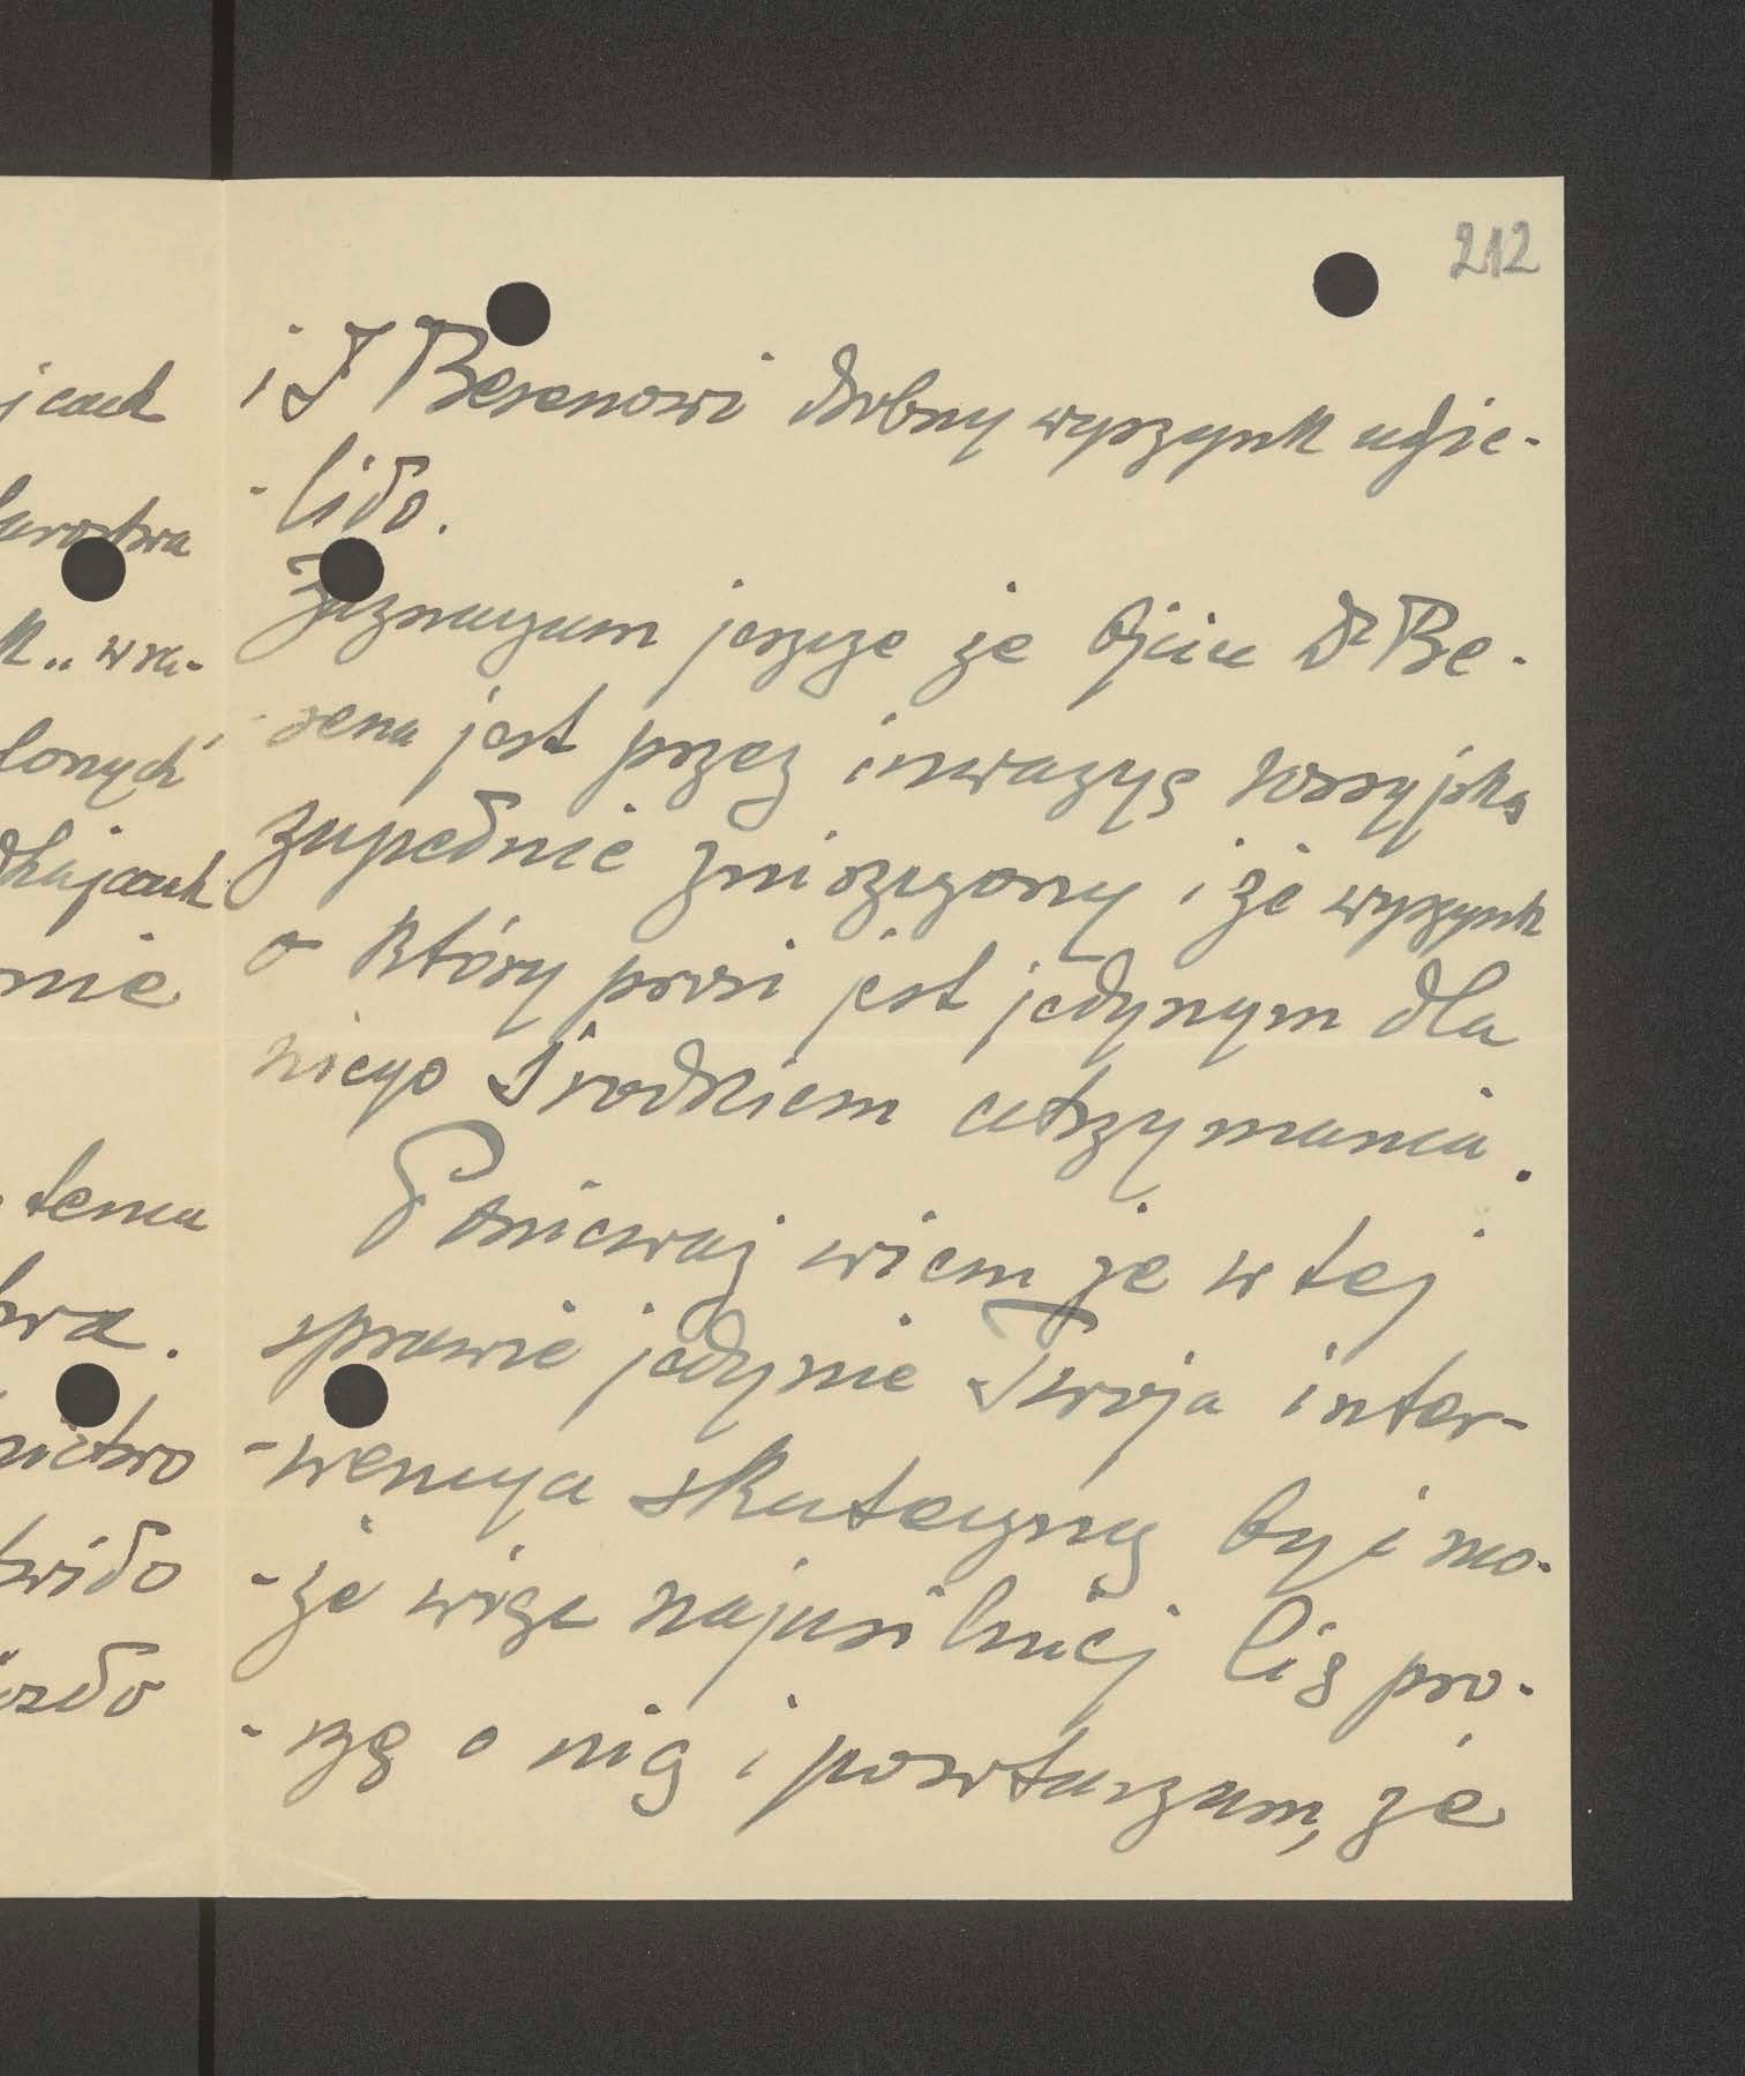 212
i J Berenowi drobny wyszynk udzie-
-liło.
Zaznaczam jeszcze że Ojciec Dr Be-
-rena jest przez inwazyę rossyjską
zupełnie zniszczony i że wyszynk
o który prosi jest jedynym dla
niego środkiem utrzymania.
Ponieważ wiem że w tej
sprawie jedynie Twoja inter-
-wencya skuteczną być mo-
-że więc najusilniej Cię pro-
-szę o nią i powtarzam, że
jcach
k.. w ra-
lonych
nie
temu
wa.
nictwo